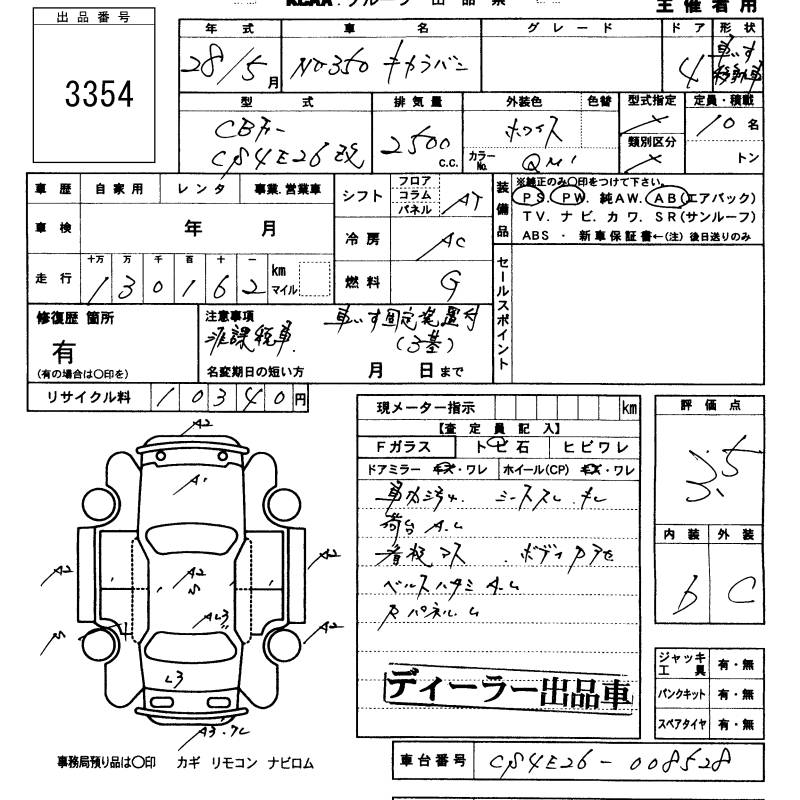 主催者用
出品番号
3354
年式 車名 グレード ドア 形状
28/5月 NO350 キャラバン 4 車いす移動車
型式 排気量 外装色 色替 型式指定 定員・積載
CBF-
CS4E26改 2500 c.c. ホワイト 10名
類別区分
カラーNo. QM1 トン
車歴 自家用 レンタ 事業.営業車
車検 年 月
走行 十万 万 千 百 十 一
130162 km マイル
シフト フロア コラム パネル AT
冷房 AC
燃料 G
装備品
※純正のみ○印をつけて下さい。
PS. PW. 純AW. AB(エアバック)
TV. ナビ. カワ. SR(サンルーフ)
ABS ・ 新車保証書←(注) 後日送りのみ
セールスポイント
修復歴 箇所
有
(有の場合は○印を)
注意事項 車いす固定装置付
非課税車 (3基)
名変期日の短い方 月 日まで
リサイクル料 10340円
現メーター指示 km
【査定員記入】
Fガラス トビ石 ヒビワレ
ドアミラー キズ・ワレ ホイール(CP) キズ・ワレ
荷台 A.L
評価点
3.5
内装 外装
b C
ジャッキ工具 有・無
パンクキット 有・無
スペアタイヤ 有・無
A2
A1
A2 A2
A2
AL3
A2
L3
ディーラー出品車
事務局預り品は○印 カギ リモコン ナビロム
車台番号 CS4E26-008528